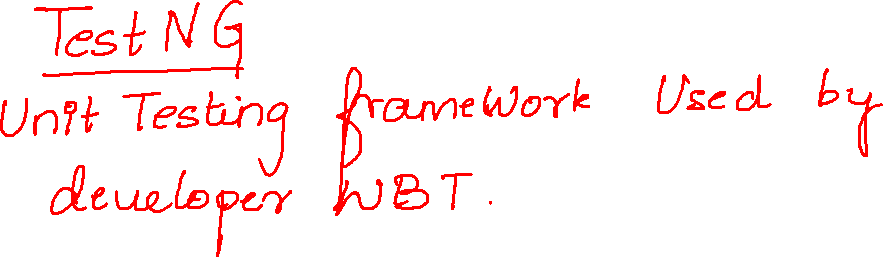 TestNG
Unit Testing framework Used by
developer WBT.